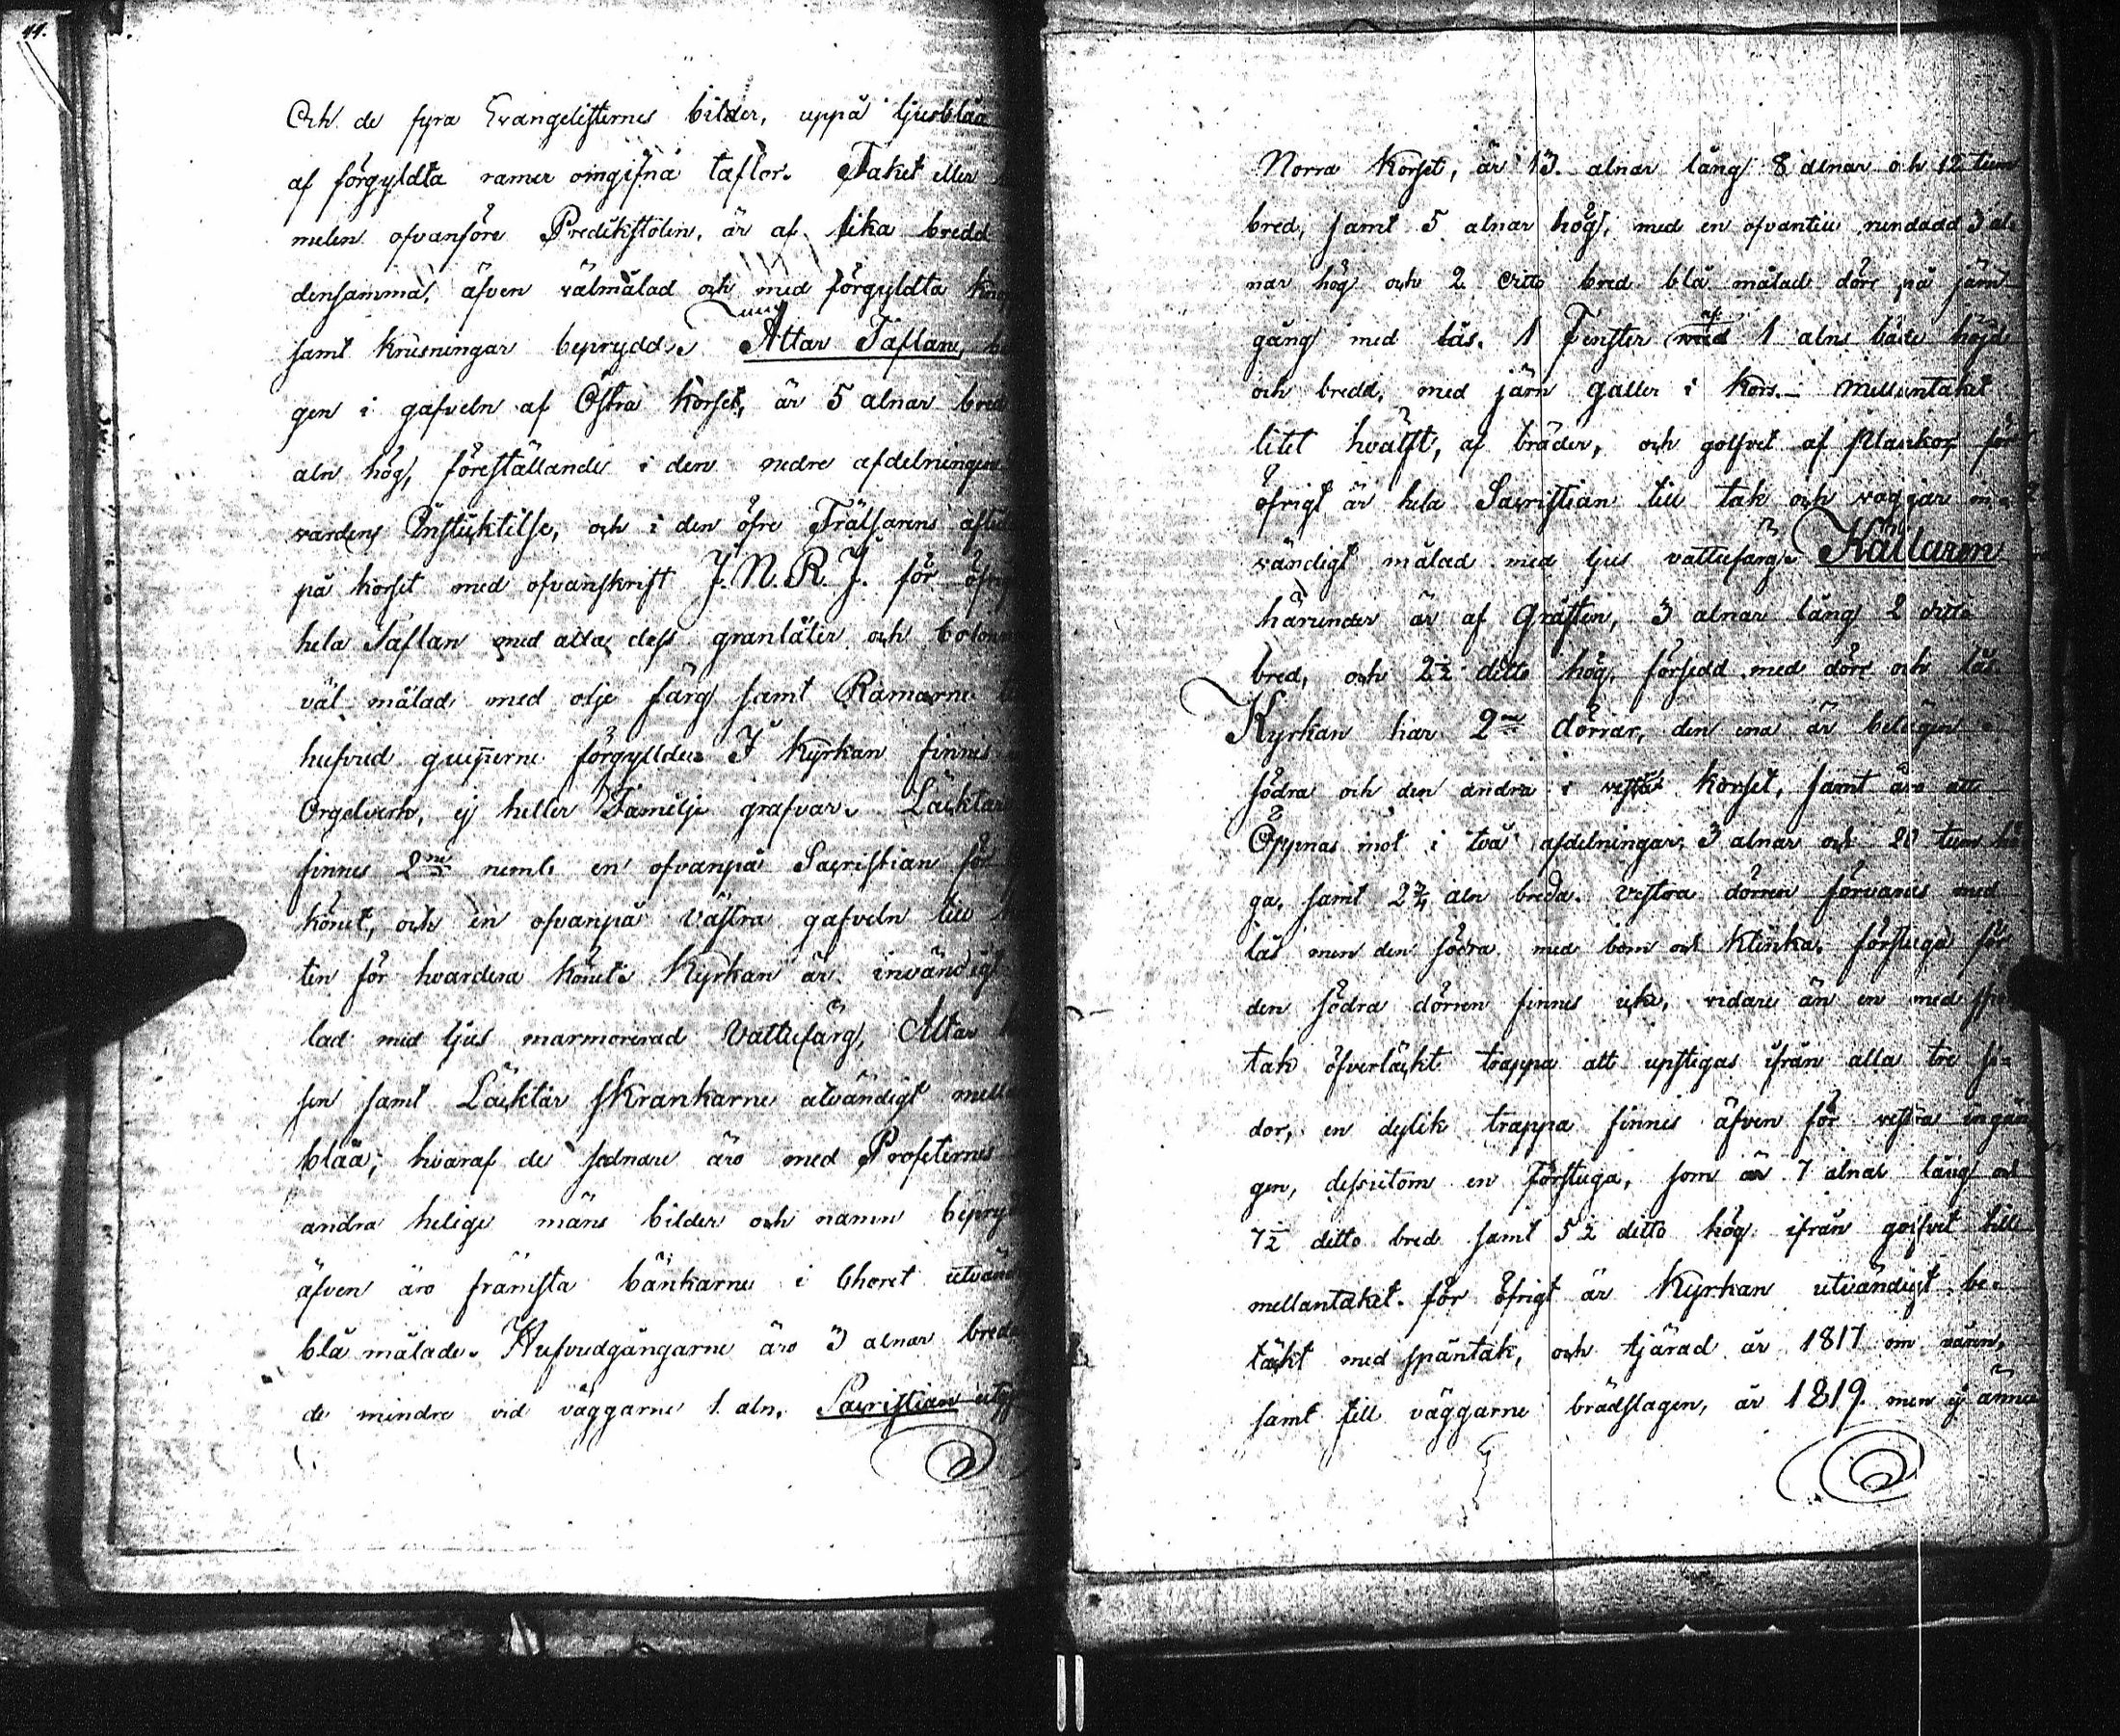 44.
Och de fyra Evangelisternes bilder, uppå ljusblåa
af förgyldta ramer omgifna taflor. Taket eller
melen ofvanföre Predikstolen, är af lika bredd
densamma, äfven välmålad och med förgyldta
samt krusningar beprydd. Altar Taflan,
gen i gafveln af Östra korset, är 5 alnar bred
aln hög, föreställande i den nedre afdelningen
vardens Instiktelse, och i den öfre Frälsarens
på korset med ofvanskrift J. N. R. J. för
hela Taflan med alla dess granlåter och
väl målad med olje färg samt Ramarne
hufvud förgyllde. I Kyrkan finnes
Orgelverk, ej heller Familje grafvar. Läcktar
finnes 2ne neml. en ofvanpå Sacristian för
könet, och en ofvanpå västra gafveln till
ten för hvardera könet. Kyrkan är invändigt
lad med ljus marmorerad Vattufärg, Altar
sen samt Läcktar skrankarne utvändigt
blåa, hvaraf de sednare äro med Profeternes
andra helige mäns bilder och namn
äfven äro främsta bänkarne i Choret
blå målade. Hufvudgångarne äro 3 alnar breda
de mindre vid väggarne 1. aln. Sacristian
Norra korset, är 13. alnar lång 8 alnar och 12 tum
bred, samt 5 alnar hög, med en ofvantill rundadd 3 al=
nar hög och 2 ditto bred blå målad dörr på järn
gång med lås. 1 Fenster af 1 alns både höjd
och bredd, med järn galler i kors. Mellantaket
litet hvälft, af bräder, och golfvet af Plankor, för
öfrigt är hela Sacristian till tak och väggar in=
vändigt målad med ljus vattufärg. Källaren
härunder är af Gråsten, 3 alnar lång 2 ditto
bred, och 2½ ditto hög, försedd med dörr och lås
Kyrkan har 2ne dörrar, den ena är belägen i
södra och den andra i vestra korset, samt äro att
Öppnas mot i två afdelningar, 3 alnar och 20 tum hö
ga, samt aln breda. Vestra dörren förvaras med
lås men den södra med bom och Klinka. förstuga för
den södra dörren finnes icke, vidare än en med
tak öfvertäckt trappa att upstigas ifrån alla tre si=
dor, en dylik trappa finnes äfven för vestra ingån
gen, dessutom en Förstuga, som är 7 alnar lång och
7½ ditto bred samt 5½ ditto hög ifrån golfvet till
mellantaket. för öfrigt är Kyrkan utvändigt be=
täkt med spåntak, och tjärad år 1817 om våren,
samt till väggarne brädslagen, år 1819. men ej ännu